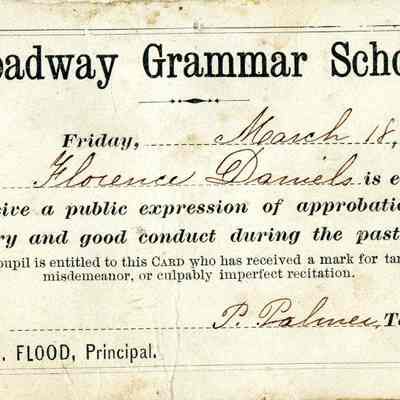 oadway Grammar Scho
Friday, March 18,
Florence Daniels is e
eive a public expression of approbatio
ry and good conduct during the past
oupil is entitled to this CARD who has received a mark for tar
misdemeanor, or culpably imperfect recitation.
P. Palmer, T
. FLOOD, Principal.